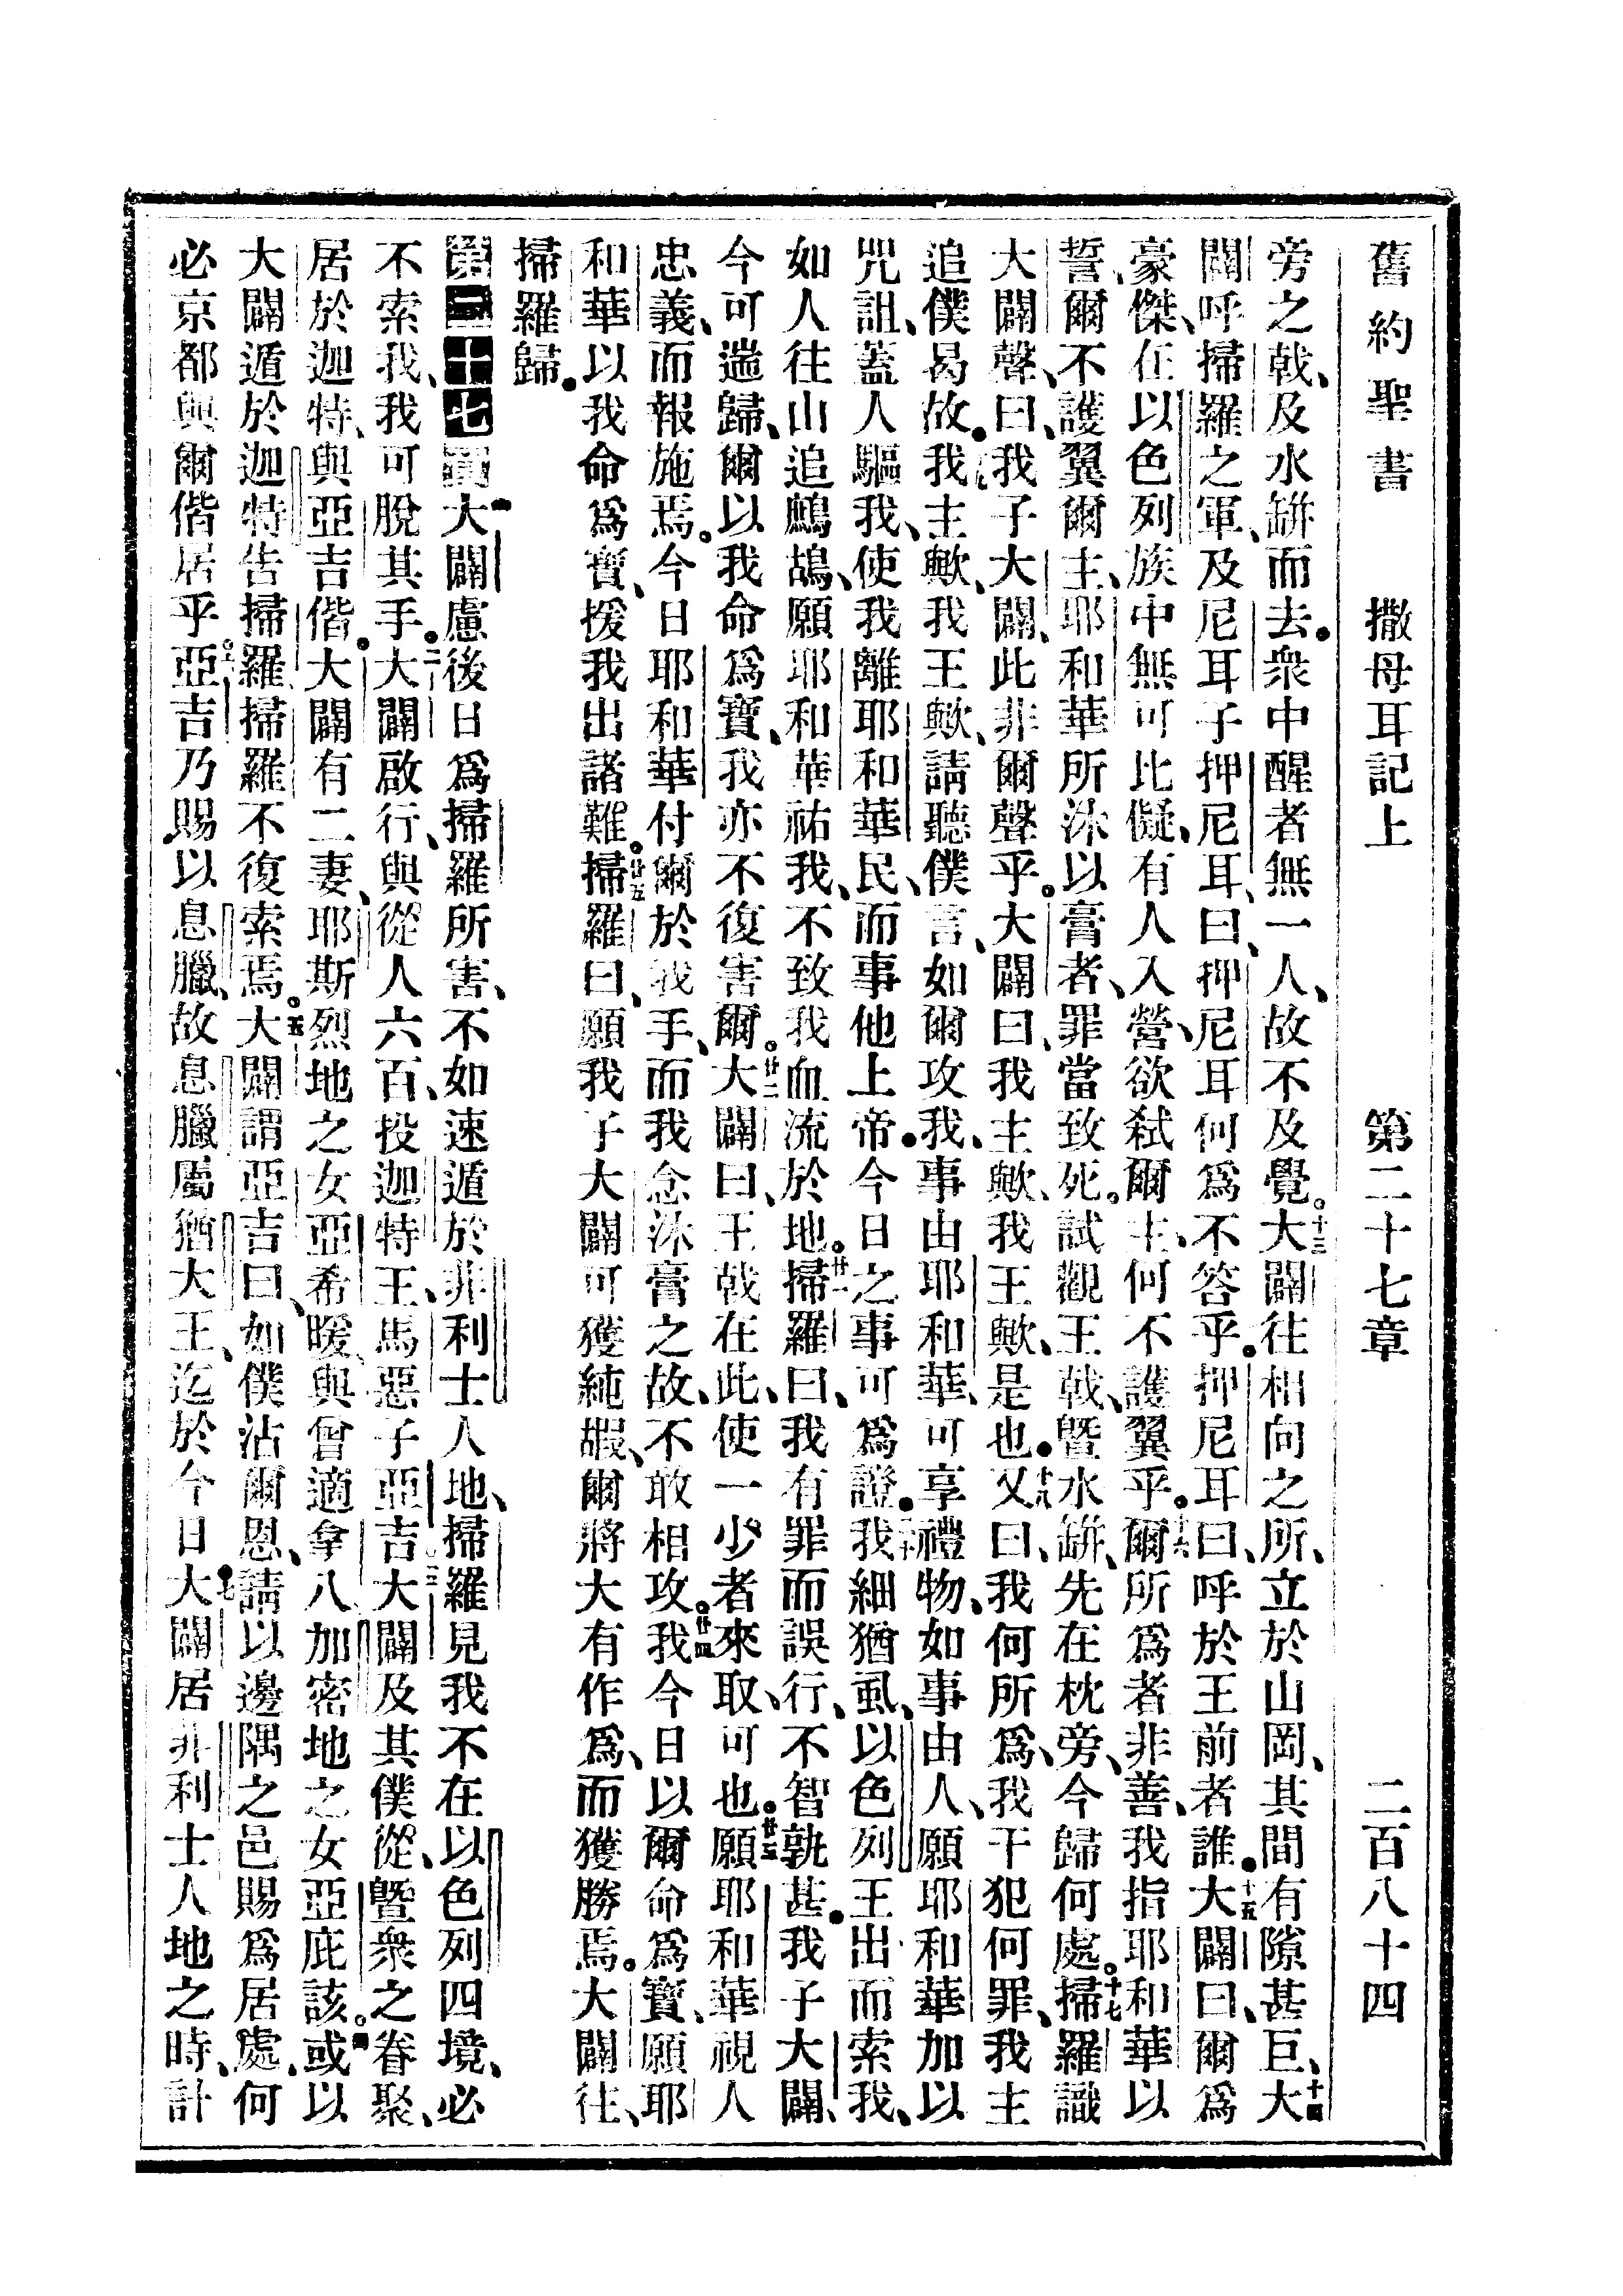 舊約聖書 撒母耳記上 第二十七章 二百八十四
旁之戟、及水缾而去。衆中醒者無一人、故不及覺。十三大闢往相向之所、立於山岡、其間有隙甚巨、十四大
闢呼掃羅之軍、及尼耳子押尼耳、曰、押尼耳何爲不答乎。押尼耳曰、呼於王前者誰。十五大闢曰、爾爲
豪傑、在以色列族中無可比儗、有人入營、欲弒爾主、何不護翼乎。十六爾所爲者非善、我指耶和華以
誓、爾不護翼爾主、耶和華所沐以膏者、罪當致死。試觀王戟、暨水缾、先在枕旁、今歸何處。十七掃羅識
大闢聲、曰、我子大闢、此非爾聲乎。大闢曰、我主歟、我王歟、是也。十八又曰、我何所爲、我干犯何罪、我主
追僕曷故。十九我主歟、我王歟、請聽僕言、如爾攻我、事由耶和華、可享禮物、如事由人、願耶和華加以
咒詛、蓋人驅我、使我離耶和華民、而事他上帝。今日之事可爲證。二十我細猶虱、以色列王出而索我、
如人往山追鷓鴣、願耶和華祐我、不致我血流於地。廿一掃羅曰、我有罪而誤行、不智孰甚。我子大闢、
今可遄歸、爾以我命爲寶、我亦不復害爾。廿二大闢曰、王戟在此、使一少者來取、可也。廿三願耶和華視人
忠義、而報施焉。今日耶和華付爾於我手、而我念沐膏之故、不敢相攻。廿四我今日以爾命爲寶、願耶
和華以我命爲寶、援我出諸難。廿五掃羅曰、願我子大闢可獲純嘏、爾將大有作爲、而獲勝焉。大闢往、
掃羅歸。
第二十七章 一大闢慮後日爲掃羅所害、不如速遁於非利士人地、掃羅見我不在以色列四境、必
不索我、我可脫其手。二大闢啟行、與從人六百、投迦特王、馬惡子亞吉。三大闢及其僕從、暨衆之眷聚、
居於迦特、與亞吉偕。大闢有二妻、耶斯烈地之女亞希暖、與曾適拿八加密地之女亞庇該。四或以
大闢遁於迦特告掃羅、掃羅不復索焉。五大闢謂亞吉曰、如僕沾爾恩、請以邊隅之邑賜爲居處、何
必京都與爾偕居乎。六亞吉乃賜以息臘、故息臘屬猶大王、迄於今日。七大闢居非利士人地之時、計